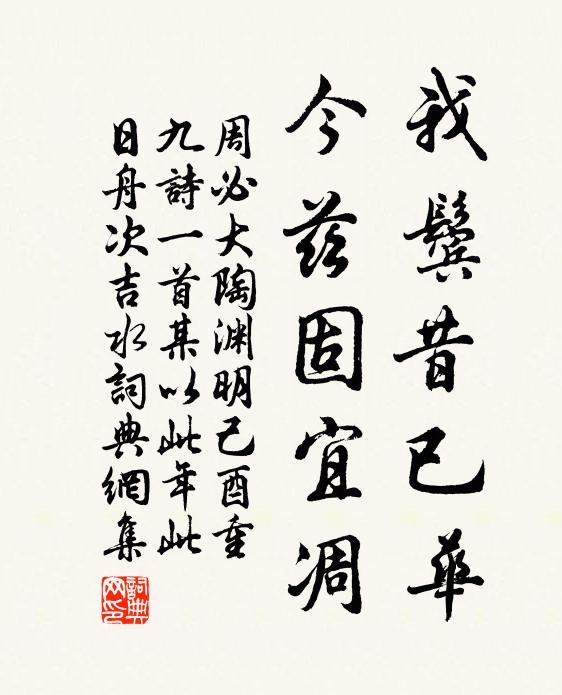 我鬢昔已華
今茲固宜凋
周必大陶淵明己酉重
九詩一首某以此年此
日舟次吉水詞典網集
詞典網印